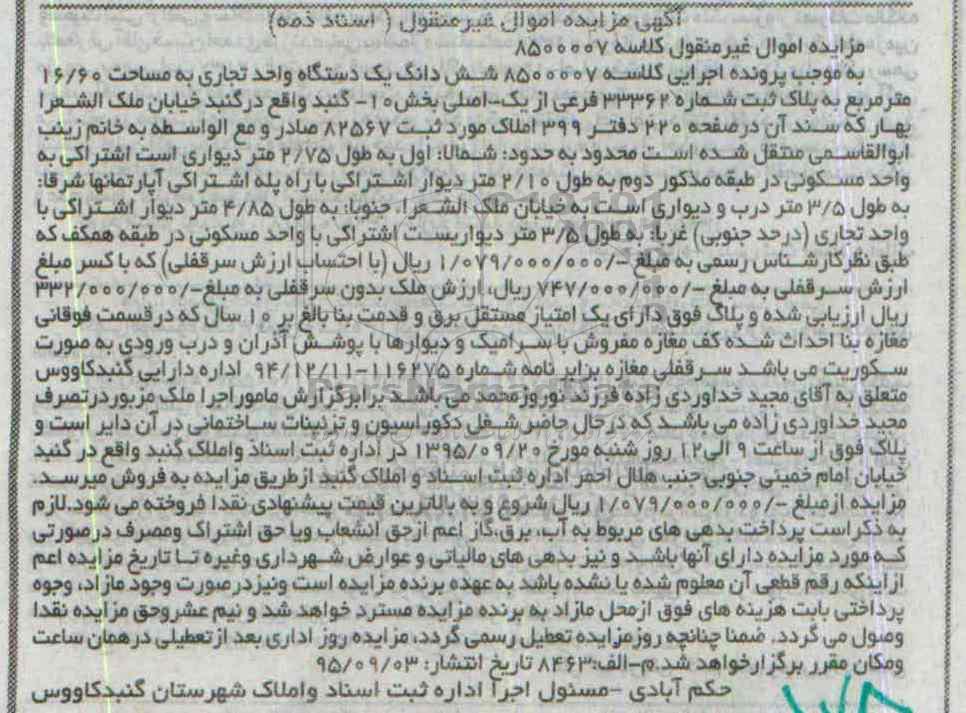 آگهی مزایده اموال غیرمنقول ( اسناد ذمه)
مزایده اموال غیرمنقول کلاسه ۸۵۰۰۰۰۷
به موجب پرونده اجرایی کلاسه ۸۵۰۰۰۰۷ شش دانگ یک دستگاه واحد تجاری به مساحت ۱۶/۶۰
مترمربع به پلاک ثبت شماره ۳۳۳۶۲ فرعی از یک-اصلی بخش۱۰- گنبد واقع درگنبد خیابان ملک الشعرا
بهار که سند آن درصفحه ۲۲۰ دفتر ۳۹۹ املاک مورد ثبت ۸۲۵۶۷ صادر و مع الواسطه به خانم زینب
ابوالقاسمی منتقل شده است محدود به حدود: شمالا: اول به طول ۲/۷۵ متر دیواری است اشتراکی به
واحد مسکونی در طبقه مذکور دوم به طول ۲/۱۰ متر دیوار اشتراکی با راه پله اشتراکی آپارتمانها شرقا:
به طول ۳/۵ متر درب و دیواری است به خیابان ملک الشعرا. جنوبا: به طول ۴/۸۵ متر دیوار اشتراکی با
واحد تجاری (درحد جنوبی) غربا: به طول ۳/۵ متر دیواریست اشتراکی با واحد مسکونی در طبقه همکف که
طبق نظرکارشناس رسمی به مبلغ -/۱/۰۷۹/۰۰۰/۰۰۰ ریال (با احتساب ارزش سرقفلی) که با کسر مبلغ
ارزش سرقفلی به مبلغ -/۷۴۷/۰۰۰/۰۰۰ ریال، ارزش ملک بدون سرقفلی به مبلغ-/۳۳۲/۰۰۰/۰۰۰
ریال ارزیابی شده و پلاک فوق دارای یک امتیاز مستقل برق و قدمت بنا بالغ بر ۱۰ سال که درقسمت فوقانی
مغازه بنا احداث شده کف مغازه مفروش با سرامیک و دیوارها با پوشش آذران و درب ورودی به صورت
سکوریت می باشد سرقفلی مغازه برابر نامه شماره ۱۱۶۲۷۵-۹۴/۱۲/۱۱ اداره دارایی گنبدکاووس
متعلق به آقای مجید خداوردی زاده فرزند نوروزمحمد می باشد برابرگزارش ماموراجرا ملک مزبوردرتصرف
مجید خداوردی زاده می باشد که درحال حاضر شغل دکوراسیون و تزئینات ساختمانی در آن دایر است و
پلاک فوق از ساعت ۹ الی۱۲ روز شنبه مورخ ۱۳۹۵/۰۹/۲۰ در اداره ثبت اسناد واملاک گنبد واقع در گنبد
خیابان امام خمینی جنوبی جنب هلال احمر اداره ثبت اسناد و املاک گنبد ازطریق مزایده به فروش میرسد.
مزایده ازمبلغ -/۱/۰۷۹/۰۰۰/۰۰۰ ریال شروع و به بالاترین قیمت پیشنهادی نقدا فروخته می شود.لازم
به ذکراست پرداخت بدهی های مربوط به آب، برق،گاز اعم ازحق انشعاب ویا حق اشتراک ومصرف درصورتی
که مورد مزایده دارای آنها باشد و نیز بدهی های مالیاتی و عوارض شهرداری وغیره تا تاریخ مزایده اعم
ازاینکه رقم قطعی آن معلوم شده یا نشده باشد به عهده برنده مزایده است ونیزدرصورت وجود مازاد، وجوه
پرداختی بابت هزینه های فوق ازمحل مازاد به برنده مزایده مسترد خواهد شد و نیم عشروحق مزایده نقدا
وصول می گردد. ضمنا چنانچه روزمزایده تعطیل رسمی گردد، مزایده روز اداری بعد ازتعطیلی درهمان ساعت
ومکان مقرر برگزارخواهد شد.م-الف:۸۴۶۳ تاریخ انتشار: ۹۵/۰۹/۰۳
حکم آبادی -مسئول اجرا اداره ثبت اسناد واملاک شهرستان گنبدکاووس